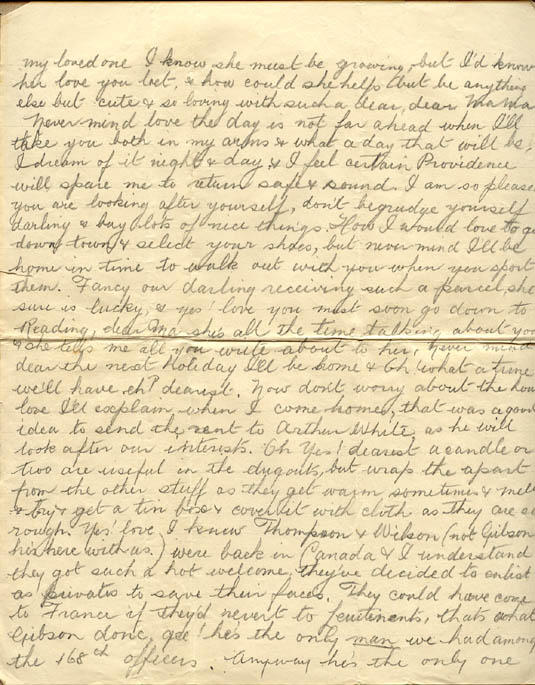 my loved one I know she must be growing, but I'd know
her love you bet, & how could she help but be anything
else but cute & so loving with such a dear, dear Mama
Never mind love the day is not far ahead when I'll
take you both in my arms & what a day that will be,
I dream of it night & day & I feel certain Providence
will spare me to return safe & sound. I am so please
you are looking after yourself, don't begrudge yourself
darling & buy lots of nice things. How I would love to go
down town & select your shoes, but never mind I'll be
home in time to walk out with you when you sport
them. Fancy our darling receiving such a parcel, she
sure is lucky, & yes! love you must soon go down to
Reading, dear Ma she's all the time talking about you
& she tells me all you write about to her, never mind
dear the next holiday I'll be home & Oh! what a time
we'll have eh? dearest. Now don't worry about the hou
love I'll explain when I come home, that was a good
idea to send the rent to Arthur White, as he will
look after our interests. Oh Yes! dearest a candle or
two are useful in the dugouts, but wrap the apart
from the other stuff as they get warm sometimes & melt
& try & get a tin box & cover it with cloth as they are so
rough. Yes! love I knew Thompson & Wilson (not Gibson
his here with us.) were back in Canada & I understand
they got such a hot welcome, they've decided to enlist
as privates to save their faces. They could have come
to France if they'd revert to, thats what
Gibson done, gee! he's the only man we had among
the 168th officers. Anyway he's the only one